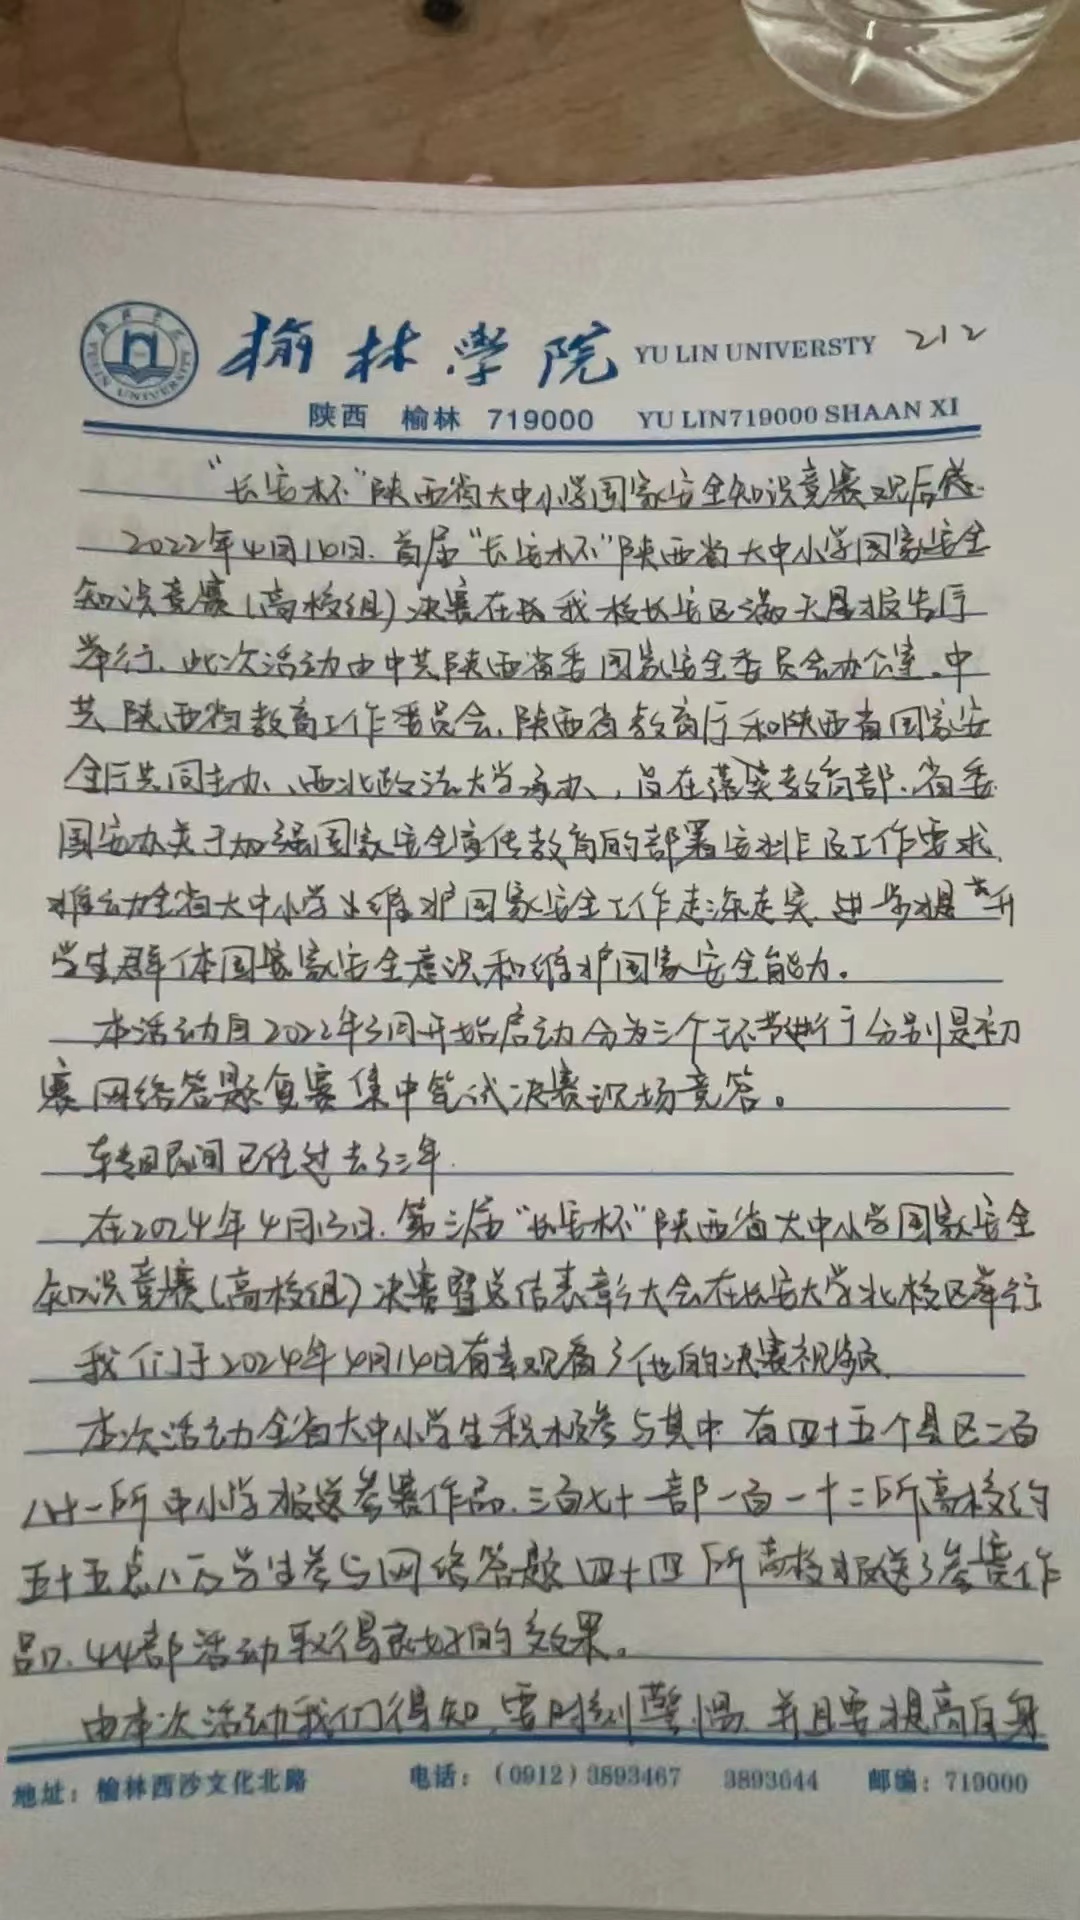 榆林学院 YU LIN UNIVERSTY 212
陕西 榆林 719000 YU LIN719000 SHAAN XI
“长安杯”陕西省大中小学国家安全知识竞赛观后感.
2022年4月10日.首届“长安杯”陕西省大中小学国家安全
知识竞赛(高校组)决赛在长我校长安区满天星报告厅
举行.此次活动由中共陕西省委国家安全委员会办公室、中
共陕西省教育工作委员会、陕西省教育厅和陕西省国家安
全厅共同主办、西北政法大学承办,旨在落实教育部、省委
国安办关于加强国家安全宣传教育的部署安排及工作要求.
推动全省大中小学 维护国家安全工作走深走实.进步提升
学生群体国家家安全意识和维护国家安全能力。
本活动自2022年3月开始启动分为三个环节进行分别是初
赛网络答题复赛集中笔试决赛现场竞答。
转间已经过去了三年.
在2024年4月13日.第三届“长安杯”陕西省大中小学国家安全
知识竞赛(高校组)决赛暨总结表彰大会在长安大学北校区举行
我们于2024年4月14日有幸观看了他的决赛视频.
本次活动全省大中小学生积极参与其中.有四十五个县区二百
八十一所中小学报送参赛作品.三百七十一部一百一十二所高校约
五十五点八万学生参与网络答题四十四所高校报送了参赛作
品.44部活动取得良好的效果。
由本次活动我们得知.要时刻警惕.并且要提高自身
地址：榆林西沙文化北路 电话：(0912)3893467 3893644 邮编：719000